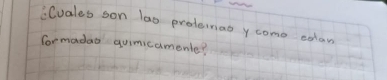 ¿Cuales son las proteinas y como estan
formadas quimicamente?